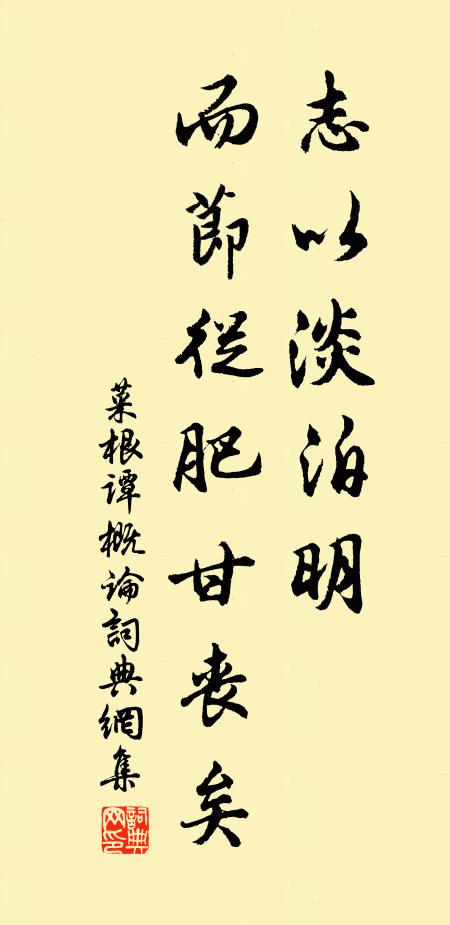 志以淡泊明
而節從肥甘喪矣
菜根谭概論詞典網集
詞典網印